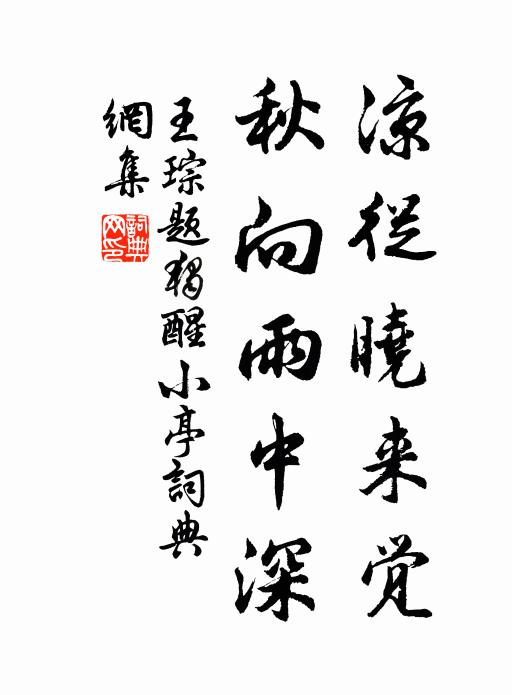 凉從曉来覚
秋向雨中深
王琮题独醒小亭詞典
網集
詞典
网印